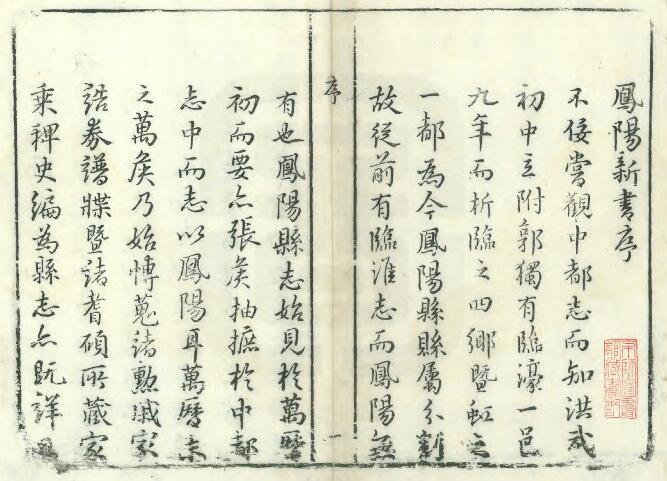 鳳陽新書序
不佞嘗觀中都志而知洪武
初中立附郭獨有臨濠一邑
九年而析臨之四鄉暨虹之
一都為今鳳陽縣縣屬分割
故從前有臨淮志而鳳陽無
序
一
有也鳳陽縣志始見於萬曆
初而要亦張侯抽摭於中都
志中而志以鳳陽耳萬曆末
之萬侯乃始博蒐諸勲戚家
誥券譜牒暨諸耆碩所藏家
乘稗史編為縣志亦既詳